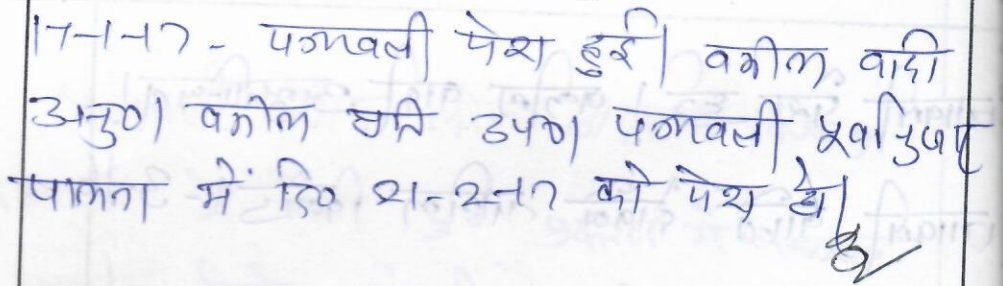 17-1-17 - पत्रावली पेश हुई। वकील वादी
अनु०। वकील प्रति उप०। पत्रावली पूर्वानुसार
पालना में दि० 21-2-17 को पेश हो।